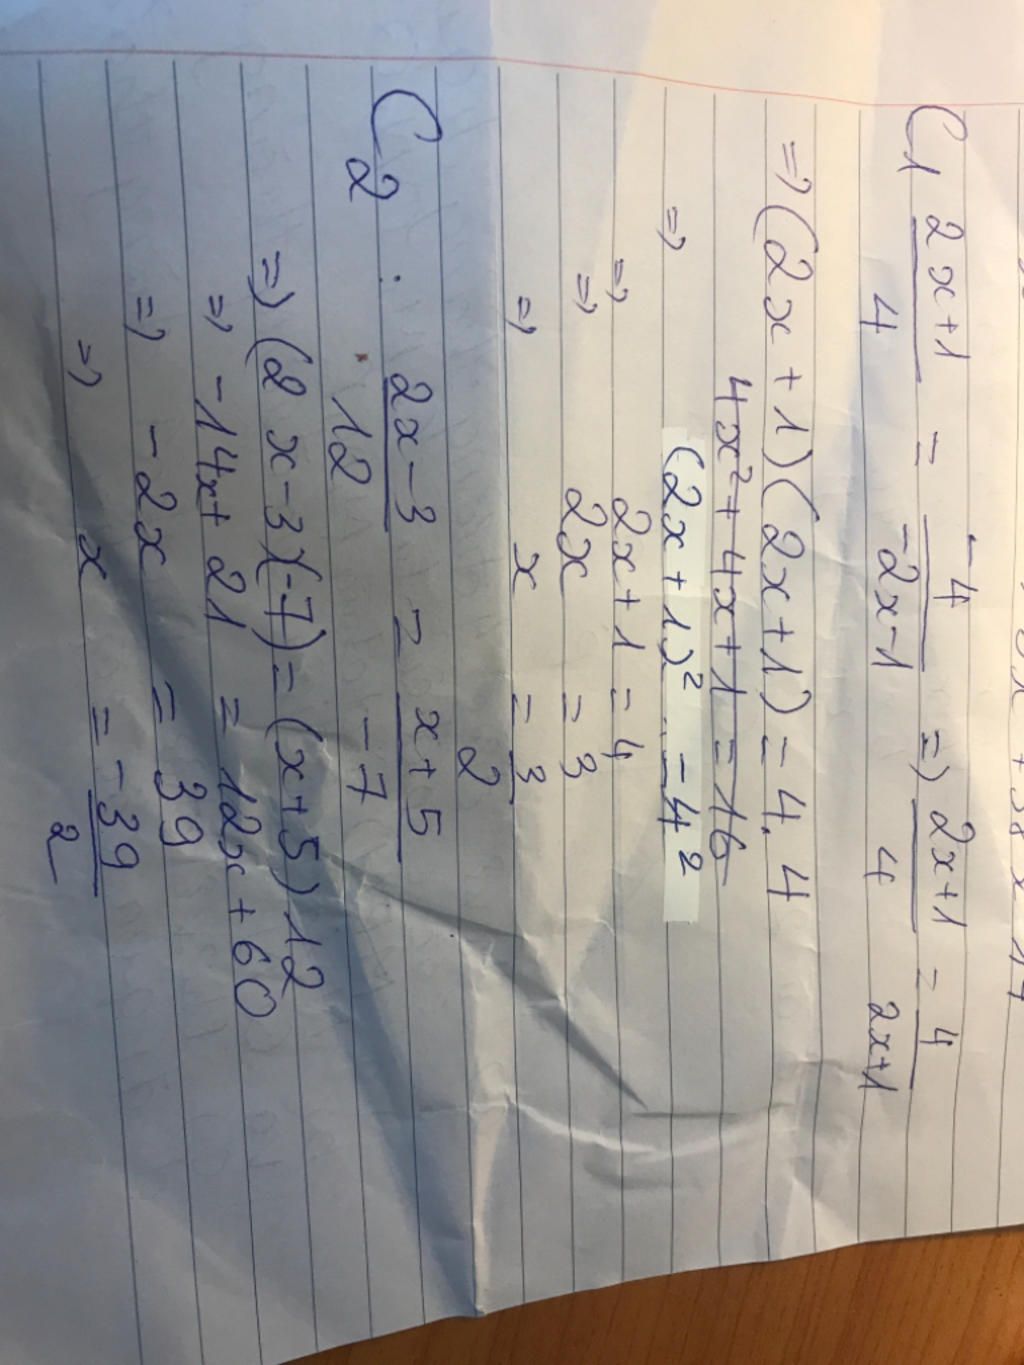 C1 2x+1/4 = -4/-2x-1 => 2x+1/4 = 4/2x+1
=> (2x+1)(2x+1) = 4.4
4x²+4x+1=16
=> (2x+1)² = 4²
=> 2x+1 = 4
=> 2x = 3
=> x = 3/2
C2. 2x-3/12 = x+5/-7
=> (2x-3)(-7) = (x+5)12
=> -14x+21 = 12x+60
=> -2x = 39
=> x = -39/2